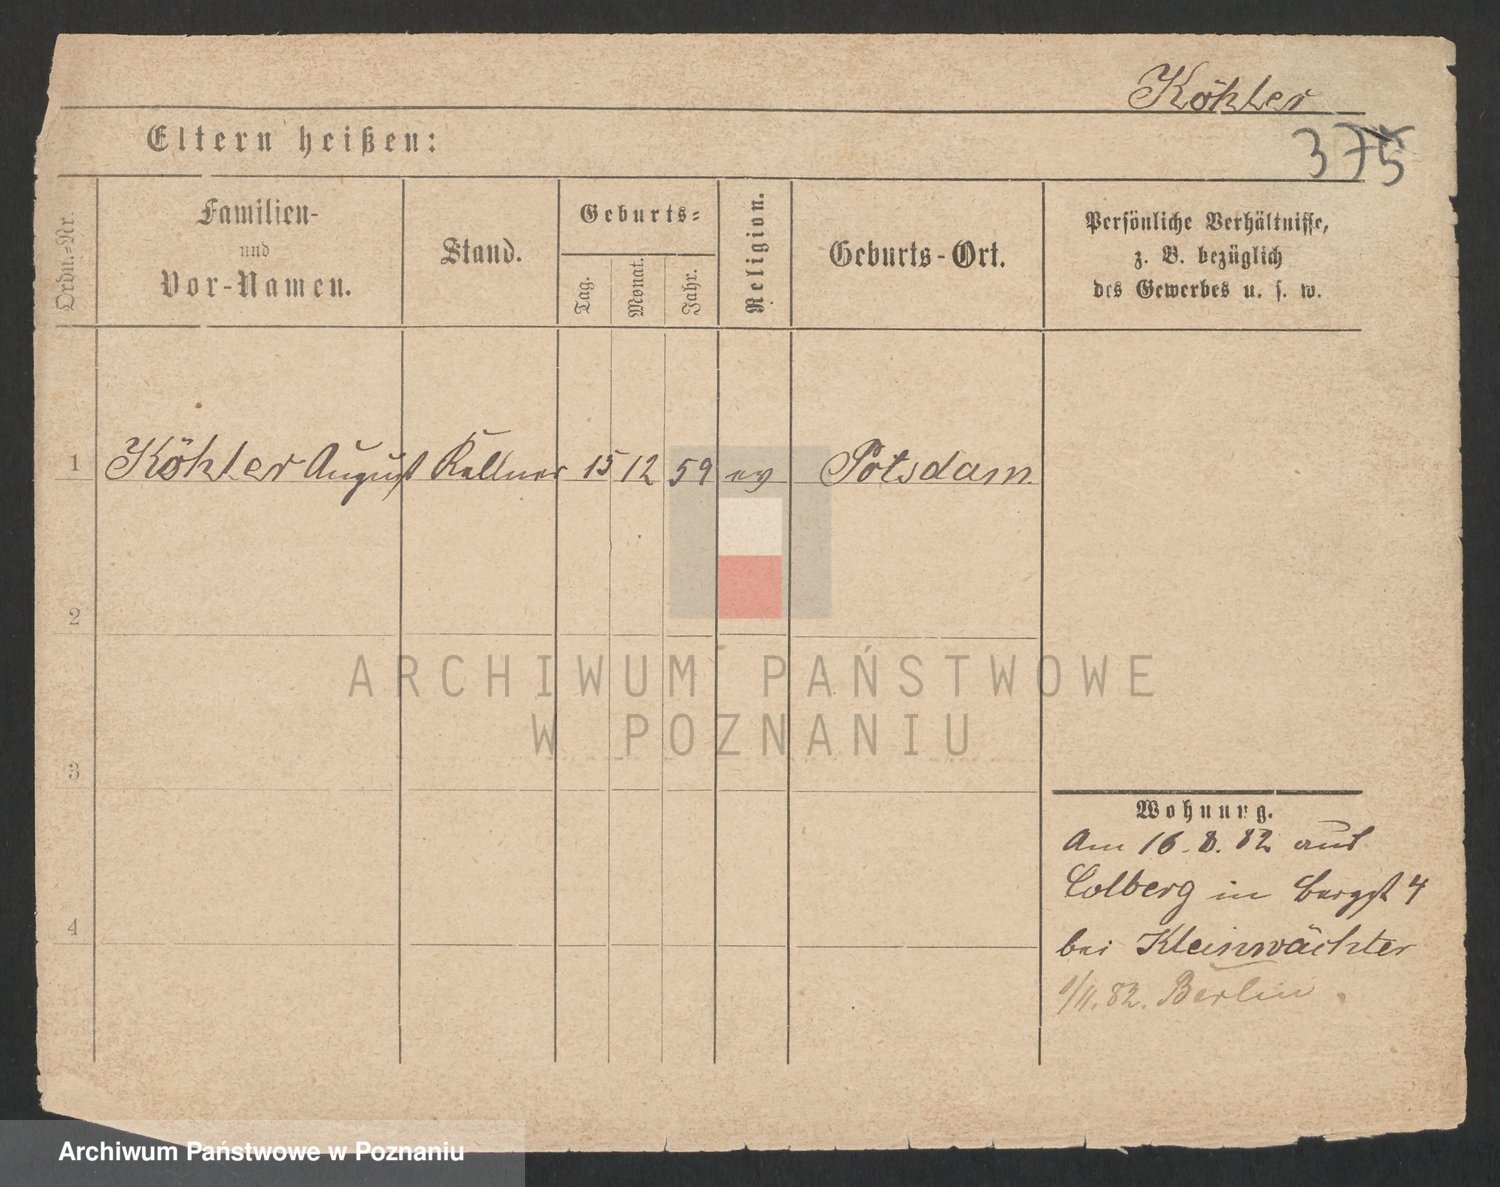 Köhler
Eltern heißen:
375
Ordn.-Nr.
Familien-
und
Vor-Namen.
Stand.
Geburts-
Tag.
Monat.
Jahr.
Religion.
Geburts-Ort.
Persönliche Verhältnisse,
z. B. bezüglich
des Gewerbes u. s. w.
1 Köhler August Kellner 15 12 59 ev Potsdam
2
3
4
ARCHIWUM PAŃSTWOWE
W POZNANIU
Wohnung.
Am 16.8.82 aus
Colberg in Bergst 4
bei Kleinwächter
1/11.82. Berlin.
Archiwum Państwowe w Poznaniu